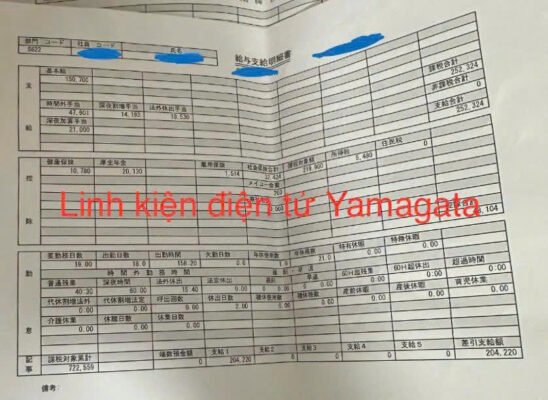 部門 コード 社員 コード 氏名
5622
給与支給明細書
支 基本給 課税合計
150,700 252,324
非課税合計
0
時間外手当 深夜割増手当 法外休出手当 支給合計
47,901 14,193 18,530 252,324
給 深夜加算手当
21,000
控 健康保険 厚生年金 雇用保険 社会保険合計 課税対象額 所得税 住民税
10,780 20,130 1,514 32,424 219,900 5,480 0
メイコー会費
除
Linh kiện điện tử Yamagata
勤 要勤務日数 出勤日数 出勤時間 欠勤日数 年休残日数 特有休暇 特無休暇
19.00 18.0 158.20 0.0 1.0 21.0 0.00 0.00
時間外勤務時間
普通残業 深夜時間 法外休出 法定休出 60H超残業 60H超休出 超過時間
40.30 60.00 15.40 0.00 0.00 0.00 0.00
代休割増法外 代休割増法定 呼出回数 休出日数 積休残日数 産前休暇 産後休暇 育児休業
0.00 0.00 0.00 2.00 0.00 0.00 0.00
怠 介護休業 休職日数 休業日数
0.00 0.00 0.00
記 課税対象累計 端数預金額 支給1 支給2 支給3 支給4 支給5 差引支給額
事 722,559 0 204,220 0 0 0 0 204,220
備考: